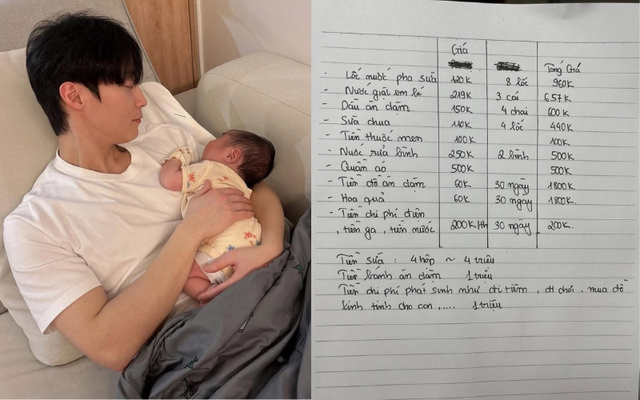 Giá Tổng Giá
- Lốc nước pha sữa 120K 8 lốc 960K
- Nước giặt em bé 219K 3 cái 657K
- Dầu ăn dặm 150K 4 chai 600K
- Sữa chua 110K 4 lốc 440K
- Tiền thuốc men 100K 100K
- Nước rửa bình 250K 2 bình 500K
- Quần áo 500K 500K
- Tiền đồ ăn dặm 60K 30 ngày 1800K
- Hoa quả 60K 30 ngày 1800K
- Tiền chi phí điện
, tiền ga, tiền nước 200K 30 ngày 200K
Tiền sữa : 4 hộp ~ 4 triệu
Tiền bánh ăn dặm 1 triệu
Tiền chi phí phát sinh như đi tiêm, đi chơi, mua đồ
linh tinh cho con,.... 1 triệu